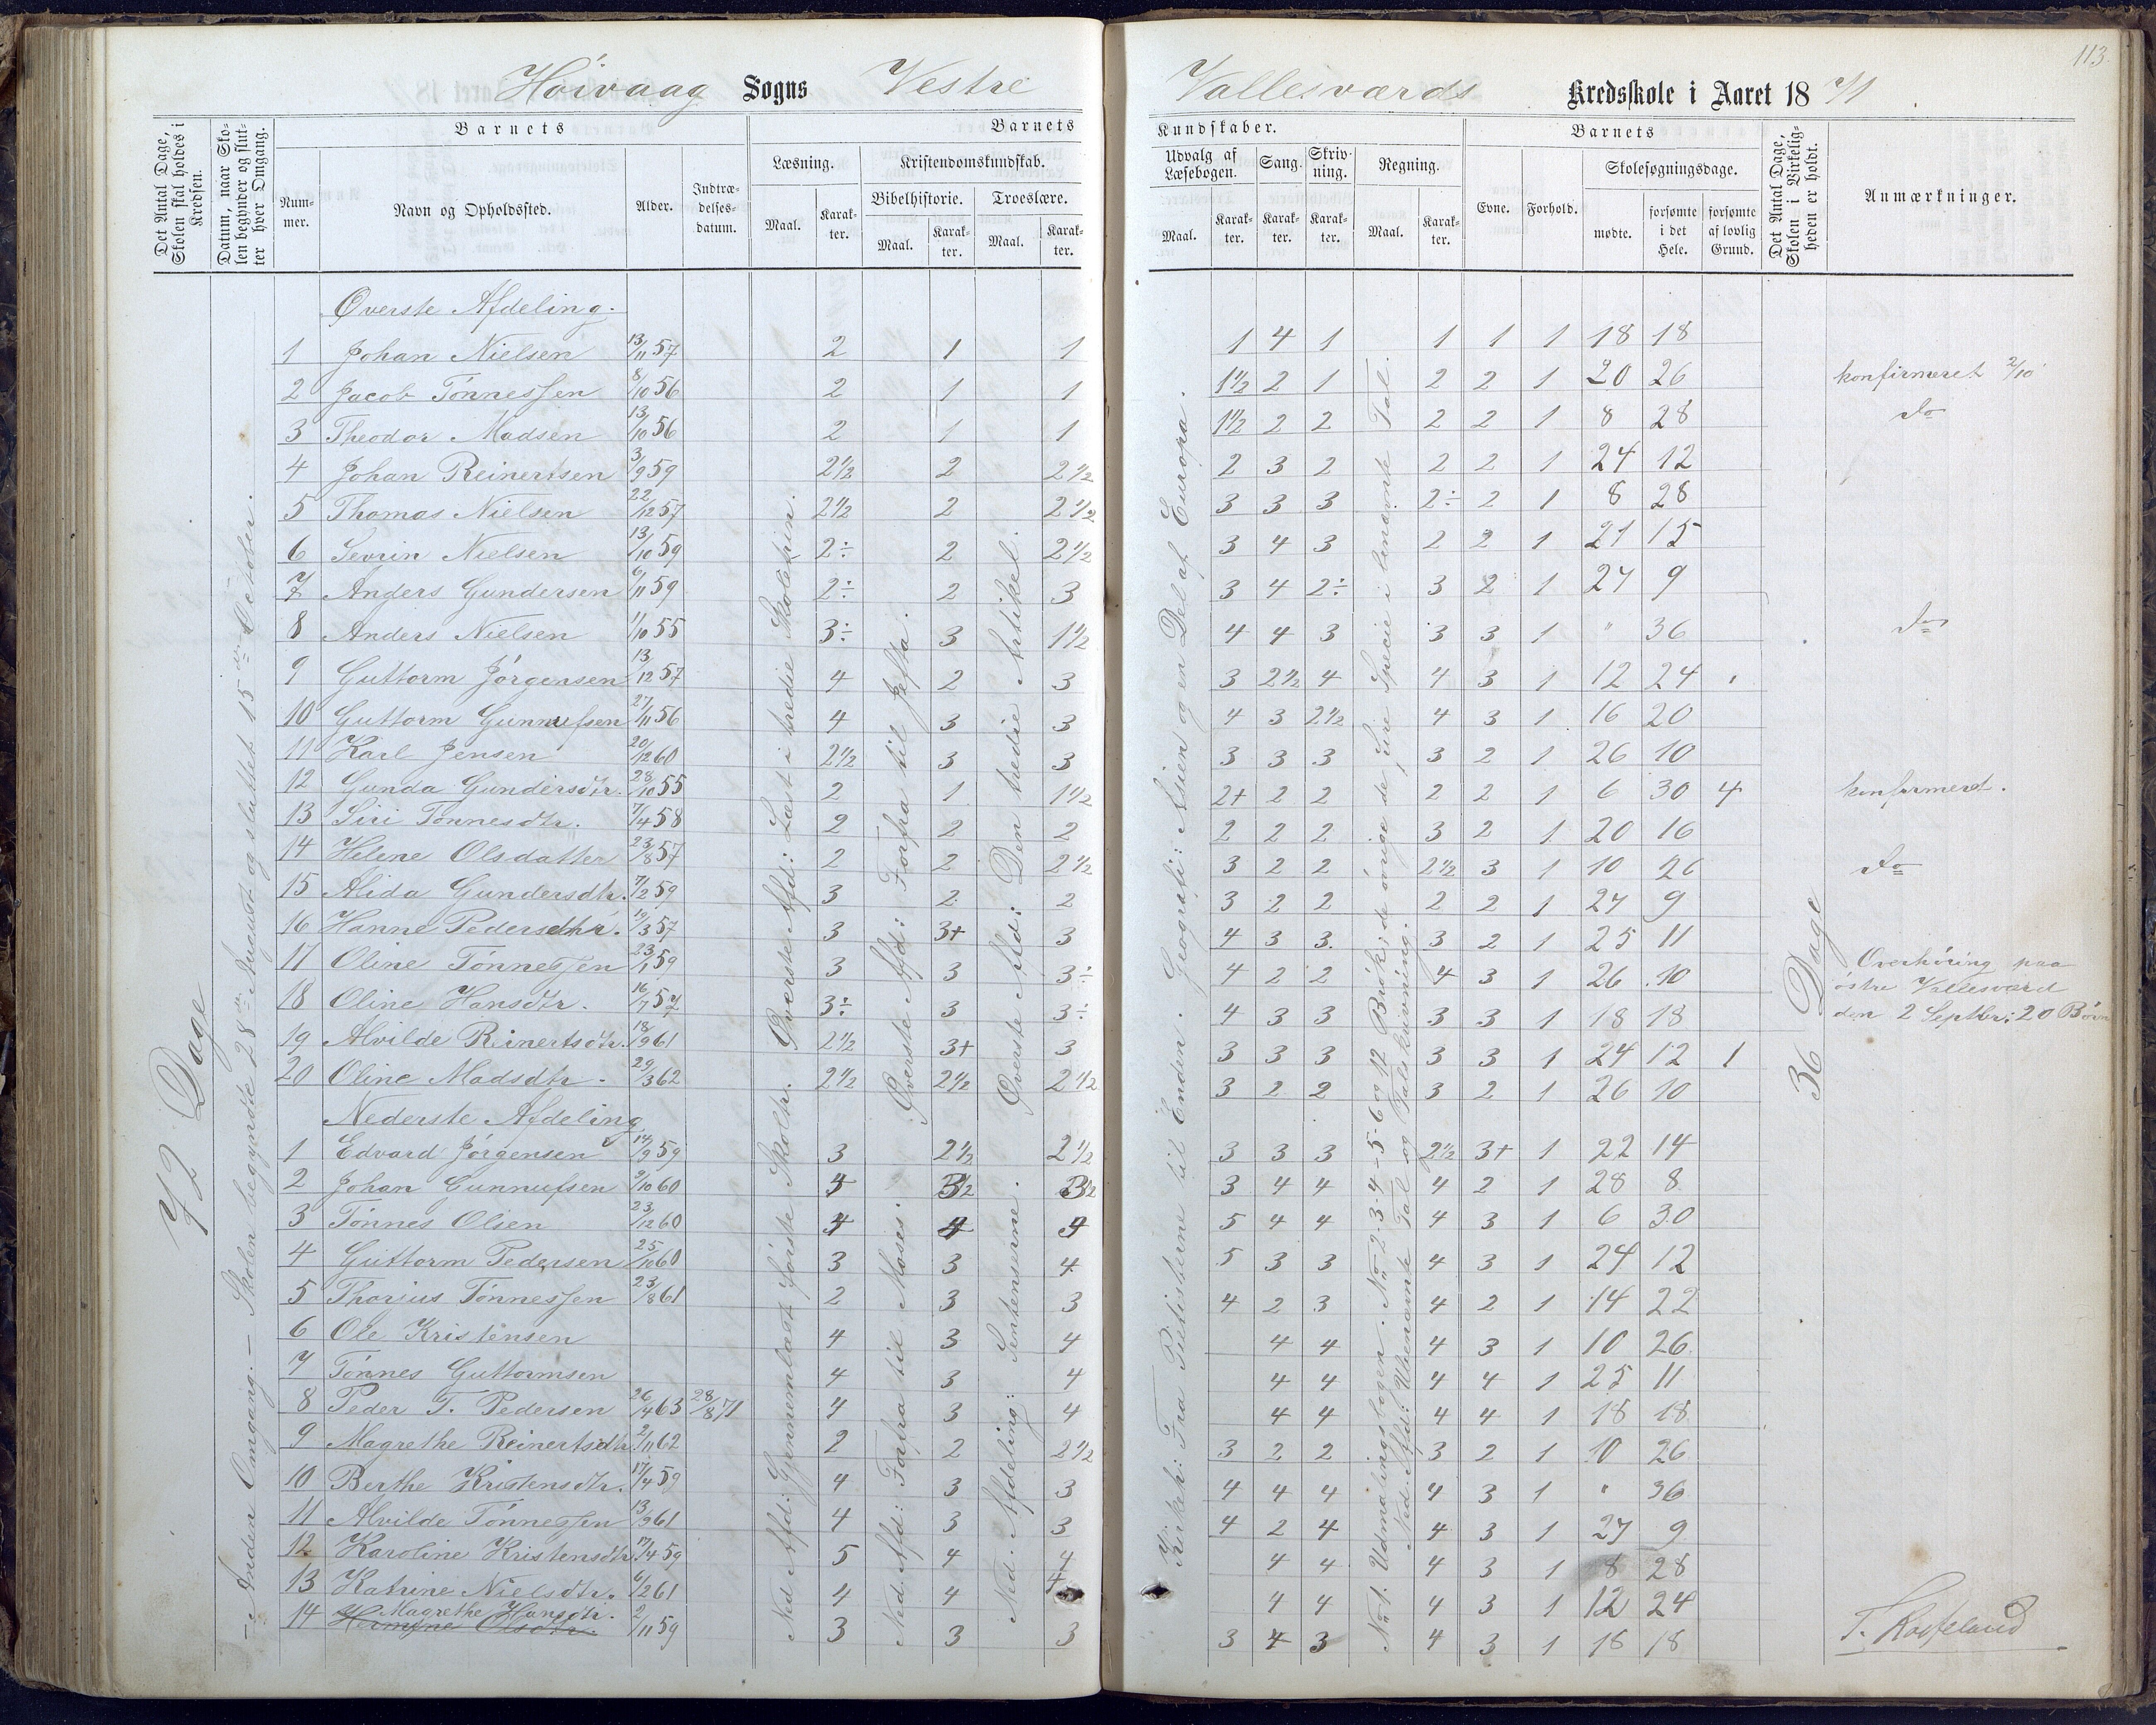 113
Höivaag Sogns Vestre Vallesværds Kredsskole i Aaret 1871.
Det Antal Dage, Skolen skal holdes i Kredsen.
Datum, naar Skolen begynder og slutter hver Omgang.
Barnets
Nummer.
Navn og Opholdssted.
Alder.
Indtrædelsesdatum.
Barnets Kundskaber.
Læsning.
Maal. Karakter.
Kristendomskundskab.
Bibelhistorie. Troeslære.
Maal. Karakter. Maal. Karakter.
Udvalg af Læsebogen. Sang. Skrivning. Regning.
Maal. Karakter. Karakter. Karakter. Maal. Karakter.
Barnets
Evne. Forhold. Skolesøgningsdage.
mødte. forsømte i det Hele. forsømte af lovlig Grund.
Det Antal Dage, Skolen i Virkeligheden er holdt.
Anmærkninger.
72 Dage
– Anden Omgang. – Skolen begyndte 28de August og sluttet 15de October.
Øverste Afd: Læst i tredie Skoletrin.
Ned. Afd: Gjennemlæst første Skoletr.
Øverste Afd: Forfra til Jefta.
Ned. Afd: Forfra til Moses.
Øverste Afd: Den tredie Artikel.
Ned. Afdeling: Sentensurne.
Kirkeh: Fra Pietisterne til Enden. Geografi: Asien og en Del af Europa.
No 1. Udmaalingsbogen. No 2-3-4-5-6 og 12 Brök; de övrige de fire Specie i benævnte Tal.
Ned. Afd: Ubenævnte Tal og Talskrivning.
36 Dage
Øverste Afdeling.
1 Johan Nielsen 13/11 57 2 1 1 1 4 1 1 1 1 18 18
2 Jacob Tönnessen 8/10 56 2 1 1 1 1/2 2 1 2 2 1 20 26 konfirmeret 2/10
3 Theodor Madsen 13/10 56 2 1 1 1 1/2 2 2 2 2 1 8 28 do
4 Johan Reinertsen 3/9 59 2 1/2 2 2 1/2 2 3 2 2 2 1 24 12
5 Thomas Nielsen 22/12 57 2 1/2 2 2 1/2 3 3 3 2÷ 2 1 8 28
6 Sevrin Nielsen 13/10 59 2÷ 2 2 1/2 3 4 3 2 2 1 21 15
7 Anders Gundersen 6/11 59 2÷ 2 3 3 4 2÷ 3 2 1 27 9
8 Anders Nielsen 11/10 55 3÷ 3 1 1/2 4 4 3 3 3 1 " 36 do
9 Guttorm Jörgensen 13/12 57 4 2 3 3 2 1/2 4 4 3 1 12 24
10 Guttorm Gunnufsen 27/11 56 4 3 3 4 3 2 1/2 4 3 1 16 20
11 Karl Jensen 20/12 60 2 1/2 3 3 3 3 3 3 2 1 26 10
12 Gunda Gundersdtr. 28/10 55 2 1 1 1/2 2+ 2 2 2 2 1 6 30 4 konfirmeret.
13 Siri Tönnesdtr. 7/4 58 2 2 2 2 2 2 3 2 1 20 16
14 Helene Olsdatter 23/8 57 2 2 2 1/2 3 2 2 2 1/2 3 1 10 26 do
15 Alida Gundersdtr. 7/2 59 3 2 2 3 2 2 2 2 1 27 9
16 Hanne Pedersdtr. 19/3 57 3 3+ 3 4 3 3 3 2 1 25 11
17 Oline Tönnessen 23/1 59 3 3 3÷ 4 2 2 4 3 1 26 10
18 Oline Hansdtr. 16/7 57 3÷ 3 3÷ 4 3 3 3 3 1 18 18
19 Alvilde Rinertsdtr. 18/9 61 2 1/2 3+ 3 3 3 3 3 3 1 24 12 1
20 Oline Madsdtr. 29/3 62 2 1/2 2 1/2 2 1/2 3 2 2 3 2 1 26 10
Overhöring paa
östre Vallesværd
den 2 Septbr: 20 Börn
Nederste Afdeling
1 Edvard Jörgensen 14/9 59 3 2 1/2 2 1/2 3 3 3 2 1/2 3+ 1 22 14
2 Johan Gunnufsen 9/10 60 4 3 1/2 3 1/2 3 4 4 4 2 1 28 8
3 Tönnes Olsen 23/12 60 4 4 4 5 4 4 4 3 1 6 30
4 Guttorm Pedersen 25/10 60 3 3 4 5 3 3 4 3 1 24 12
5 Thorius Tönnessen 23/8 61 2 3 3 4 2 3 4 2 1 14 22
6 Ole Kristensen 4 3 4 4 4 4 3 1 10 26
7 Tönnes Guttormsen 4 3 4 4 4 4 4 1 25 11
8 Peder T. Pedersen 26/4 63 28/8 71 4 3 4 4 4 4 4 1 18 18
9 Magrethe Reinertsdtr 2/11 62 2 2 2 1/2 3 2 2 3 2 1 10 26
10 Berthe Kristensdtr. 17/4 59 4 3 3 4 4 4 4 3 1 " 36
11 Alvilde Tönnessen 13/9 61 4 3 3 4 2 4 4 3 1 27 9
12 Karoline Kristensdtr 17/4 59 5 4 4 4 4 4 3 1 8 28
13 Katrine Nielsdtr. 6/2 61 4 4 4 4 4 4 3 1 12 24
14 Magrethe Hansdtr. 2/11 59 3 3 3 3 4 3 4 3 1 18 18